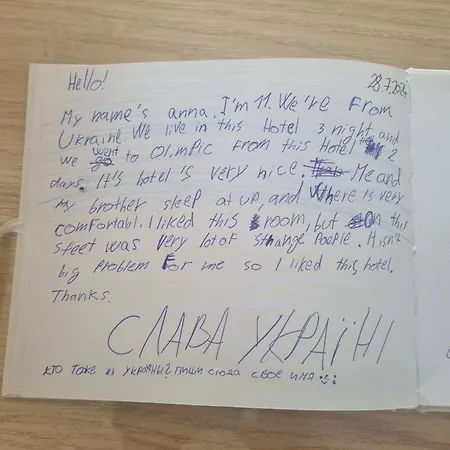 Hello!
28.7.2024
My name's anna. I'm 11. We're From
Ukraine We live in this Hotel 3 night and
we went to Olimpic from this Hotel 2
days. It's hotel is very nice. Me and
my brother sleep at up, and Where is very
comfortabl. I liked this room, but on this
steet was very lot of strange People. It isn't
big Problem For me so I liked this hotel.
Thanks.
СЛАВА УКРАЇНІ
КТО Тоже из УКРАИНЫ? ПИШИ СЮДА СВОЕ ИМЯ